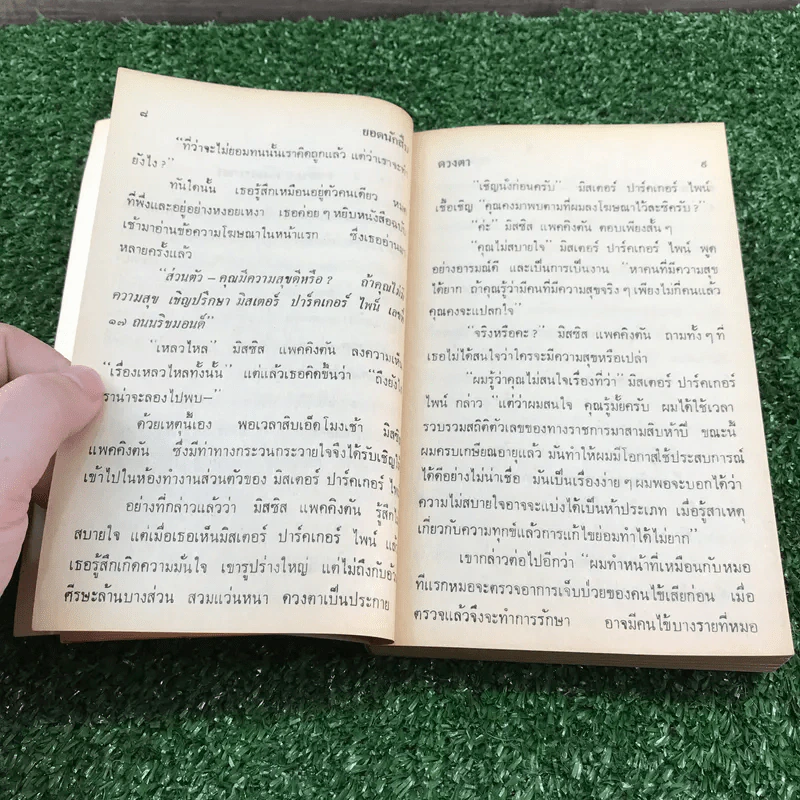 ๘
ยอดนักสืบ
"ที่ว่าจะไม่ยอมทนนั้นเราคิดถูกแล้ว แต่ว่าเราจะทำ
ยังไง?"
ทันใดนั้น เธอรู้สึกเหมือนอยู่ตัวคนเดียว หมด
ที่พึ่งและอยู่อย่างหงอยเหงา เธอค่อยๆ หยิบหนังสือฉบับ
เช้ามาอ่านข้อความโฆษณาในหน้าแรก ซึ่งเธออ่านมา
หลายครั้งแล้ว
"ส่วนตัว – คุณมีความสุขดีหรือ? ถ้าคุณไม่มี
ความสุข เชิญปรึกษา มิสเตอร์ ปาร์คเกอร์ ไพน์ เลขที่
๑๗ ถนนริชมอนด์"
"เหลวไหล" มิสซิส แพคคิงตัน ลงความเห็น
"เรื่องเหลวไหลทั้งนั้น" แต่แล้วเธอคิดขึ้นว่า "ถึงยังไง
เราน่าจะลองไปพบ—"
ด้วยเหตุนี้เอง พอเวลาสิบเอ็ดโมงเช้า มิสซิส
แพคคิงตัน ซึ่งมีท่าทางกระวนกระวายใจจึงได้รับเชิญให้
เข้าไปในห้องทำงานส่วนตัวของ มิสเตอร์ ปาร์คเกอร์ ไพน์
อย่างที่กล่าวแล้วว่า มิสซิส แพคคิงตัน รู้สึกไม่
สบายใจ แต่เมื่อเธอเห็นมิสเตอร์ ปาร์คเกอร์ ไพน์ แล้ว
เธอรู้สึกเกิดความมั่นใจ เขารูปร่างใหญ่ แต่ไม่ถึงกับอ้วน
ศีรษะล้านบางส่วน สวมแว่นหนา ดวงตาเป็นประกาย
ดวงตา
๙
"เชิญนั่งก่อนครับ" มิสเตอร์ ปาร์คเกอร์ ไพน์
เชื้อเชิญ "คุณคงมาพบตามที่ผมลงโฆษณาไว้ละซิครับ?"
"ค่ะ" มิสซิส แพคคิงตัน ตอบเพียงสั้นๆ
"คุณไม่สบายใจ" มิสเตอร์ ปาร์คเกอร์ ไพน์ พูด
อย่างอารมณ์ดี และเป็นการเป็นงาน "หาคนที่มีความสุข
ได้ยาก ถ้าคุณรู้ว่ามีคนที่มีความสุขจริงๆ เพียงไม่กี่คนแล้ว
คุณคงจะแปลกใจ"
"จริงหรือคะ?" มิสซิส แพคคิงตัน ถามทั้งๆ ที่
เธอไม่ได้สนใจว่าใครจะมีความสุขหรือเปล่า
"ผมรู้ว่าคุณไม่สนใจเรื่องที่ว่า" มิสเตอร์ ปาร์คเกอร์
ไพน์ กล่าว "แต่ว่าผมสนใจ คุณรู้มั้ยครับ ผมได้ใช้เวลา
รวบรวมสถิติตัวเลขของทางราชการมาสามสิบห้าปี ขณะนี้
ผมครบเกษียณอายุแล้ว มันทำให้ผมมีโอกาสใช้ประสบการณ์
ได้ดีอย่างไม่น่าเชื่อ มันเป็นเรื่องง่ายๆ ผมพอจะบอกได้ว่า
ความไม่สบายใจอาจจะแบ่งได้เป็นห้าประเภท เมื่อรู้สาเหตุ
เกี่ยวกับความทุกข์แล้วการแก้ไขย่อมทำได้ไม่ยาก"
เขากล่าวต่อไปอีกว่า "ผมทำหน้าที่เหมือนกับหมอ
ทีแรกหมอจะตรวจอาการเจ็บป่วยของคนไข้เสียก่อน เมื่อ
ตรวจแล้วจึงจะทำการรักษา อาจมีคนไข้บางรายที่หมอ